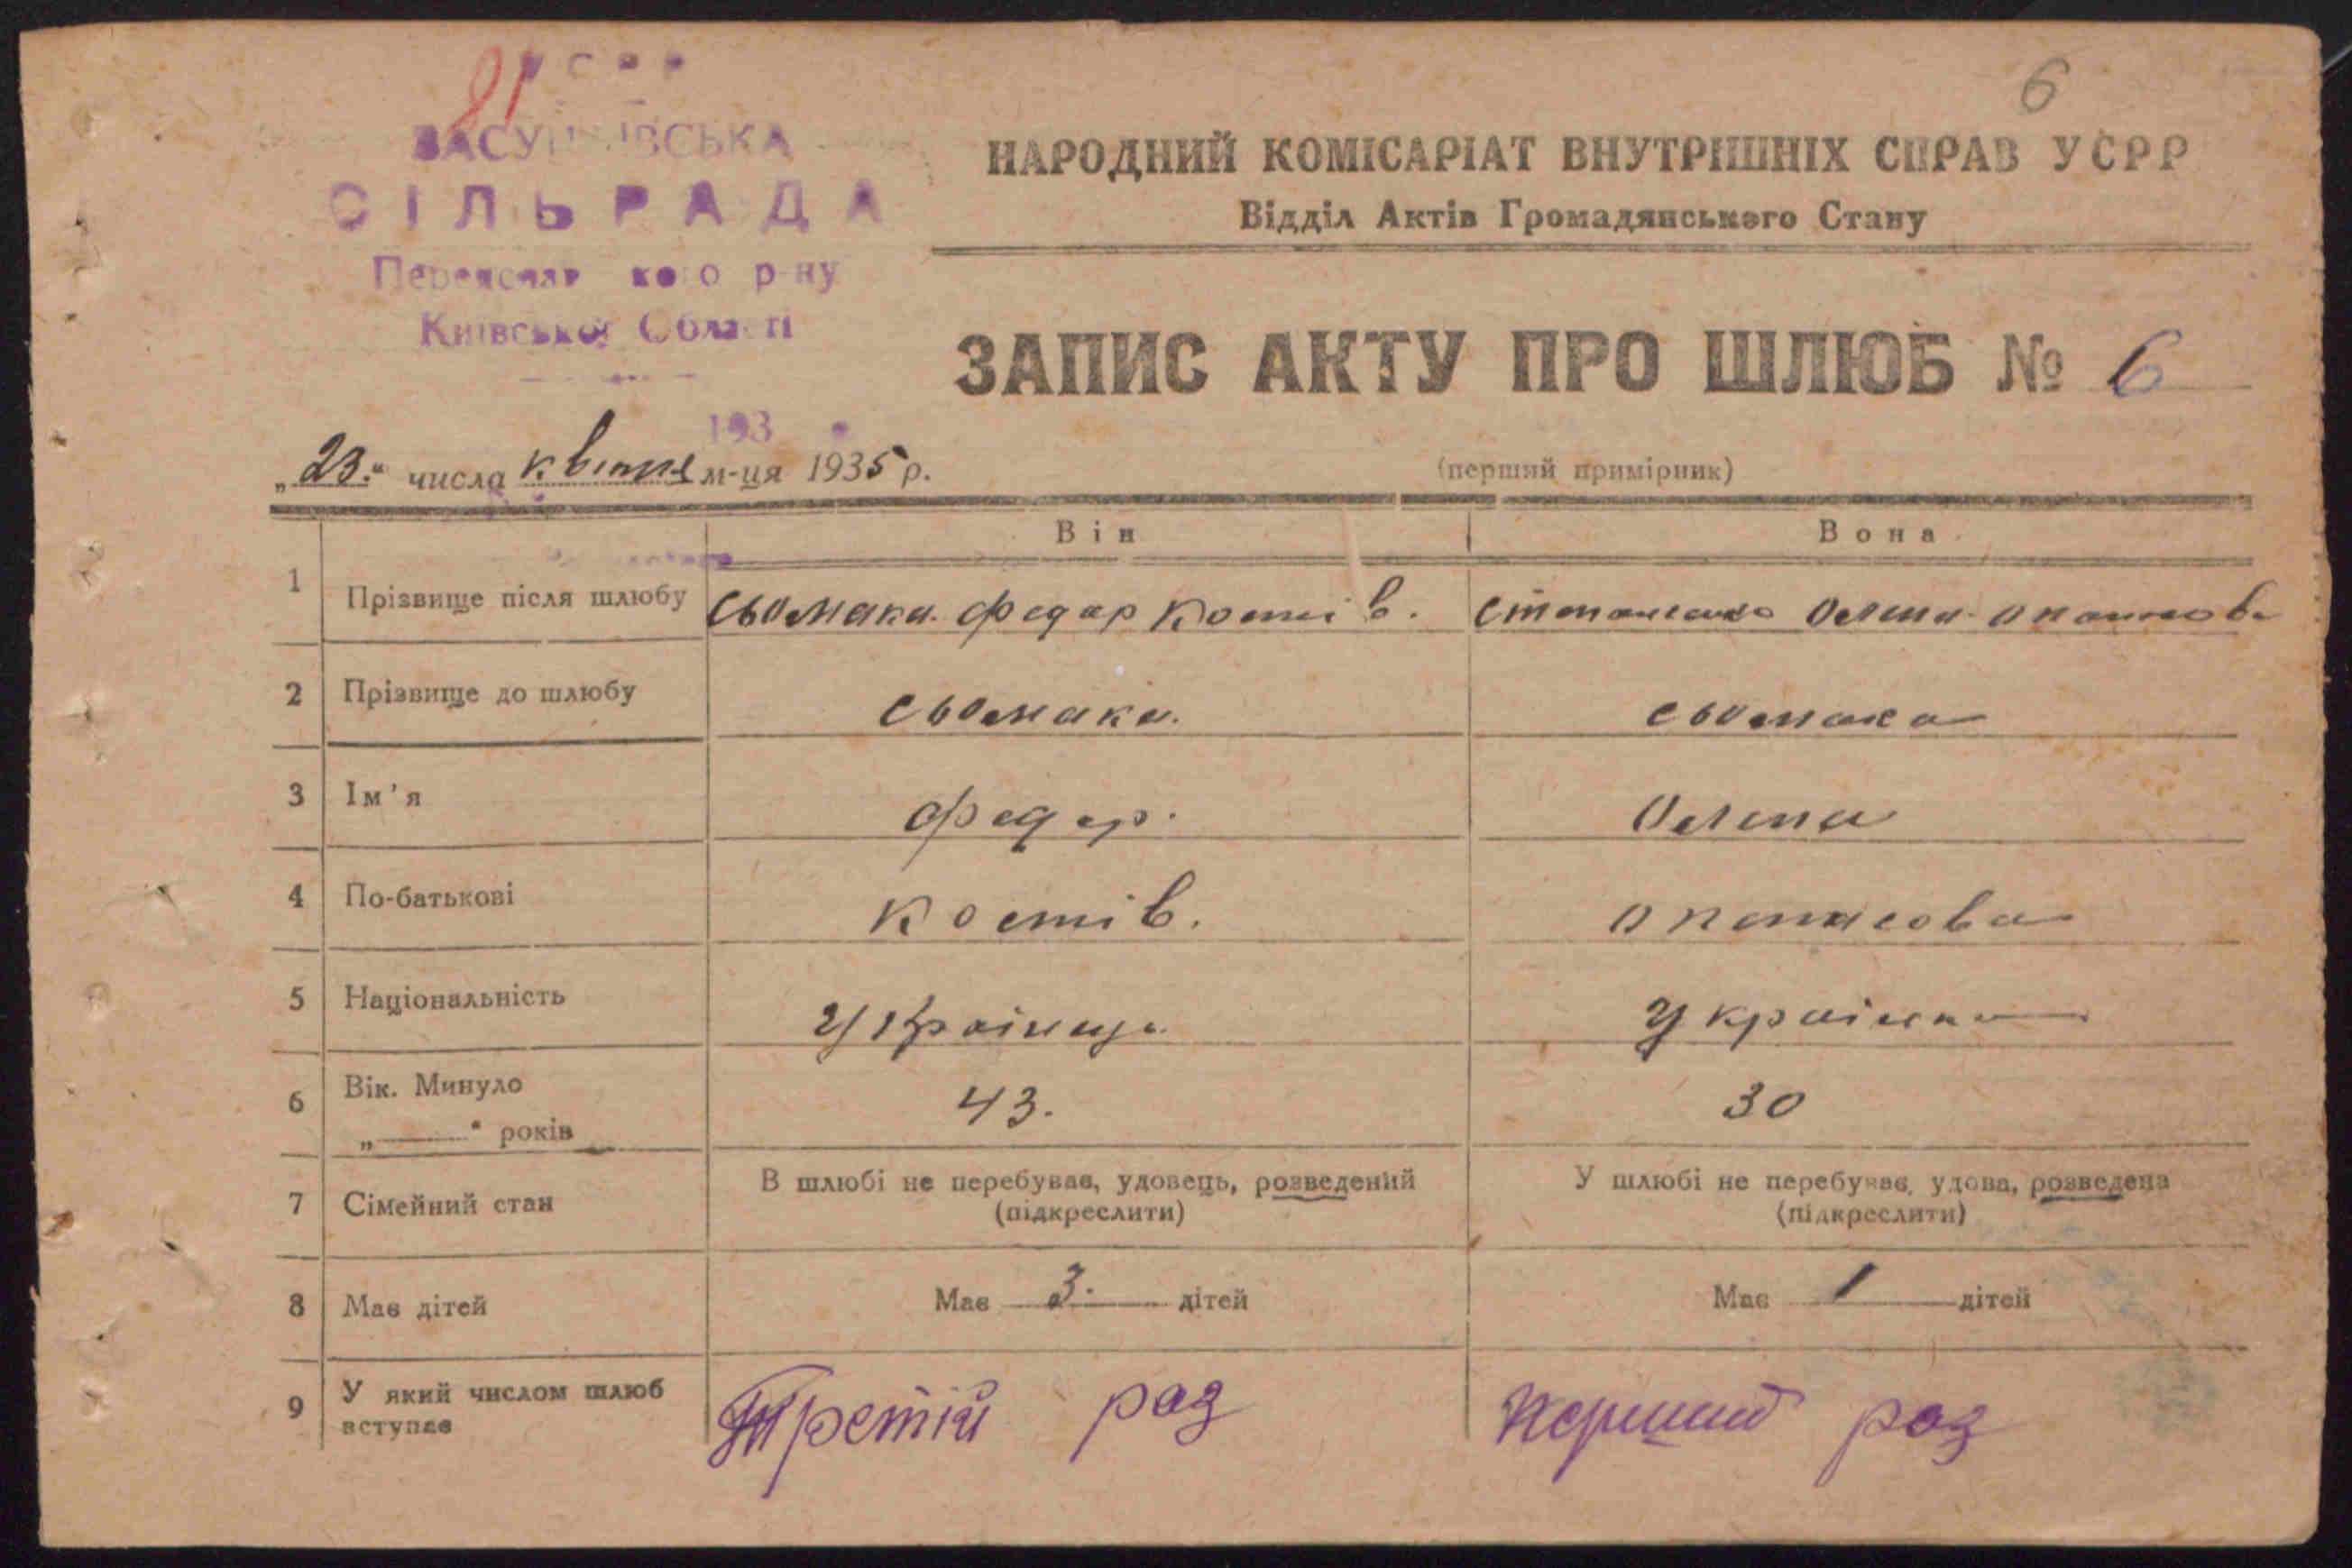 6
81
СІЛЬРАДА
р-ну
Київської Області
193
НАРОДНИЙ КОМІСАРІАТ ВНУТРІШНІХ СПРАВ УСРР
Відділ Актів Громадянського Стану
ЗАПИС АКТУ ПРО ШЛЮБ № 6
„23“ числа квітня м-ця 1935 р.
(перший примірник)
Він Вона
1 Прізвище після шлюбу Сьомака Федар Костів. Степаненко Олена Опанасова
2 Прізвище до шлюбу Сьомака. Сьомака
3 Ім'я Федар. Олена
4 По-батькові Костів. Опанасова
5 Національність Українець Українка
6 Вік. Минуло 43. 30
„——“ років
7 Сімейний стан В шлюбі не перебував, удовець, розведений У шлюбі не перебував, удова, розведена
(підкреслити) (підкреслити)
8 Має дітей Має 3. дітей Має 1 дітей
9 У який числом шлюб Третій раз Перший раз
вступає